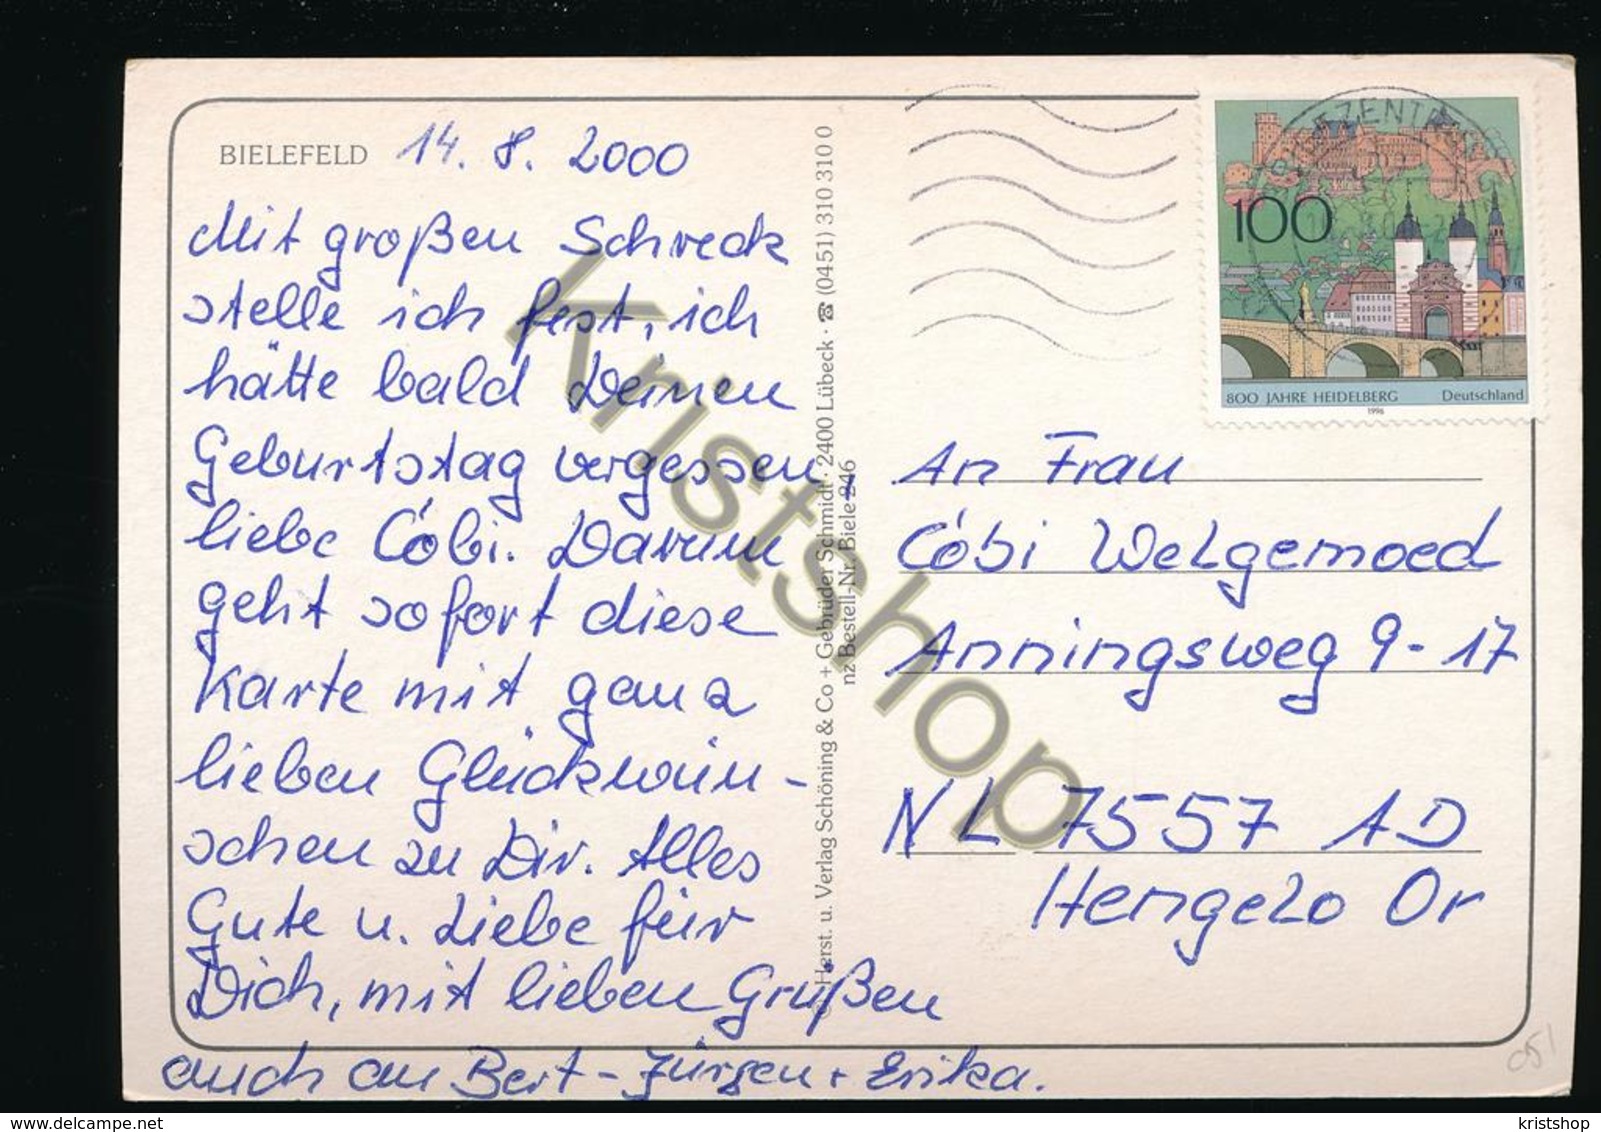 BIELEFELD 14. 8. 2000
Mit großen Schreck
stelle ich fest, ich
hätte bald Deinen
Geburtstag vergessen
liebe Cóbi. Darum
geht sofort diese
Karte mit ganz
lieben Glückwün-
schen zu Dir. Alles
Gute u. Liebe für
Dich, mit lieben Grüßen
auch an Bert - Jürgen + Erika.
© Herst. u. Verlag Schöning & Co + Gebrüder Schmidt · 2400 Lübeck · ☎ (0451) 310 310 0
nz Bestell-Nr. Biele 246
100
800 JAHRE HEIDELBERG Deutschland
1996
An Frau
Cóbi Welgemoed
Anningsweg 9-17
NL 7557 AD
Hengelo Or
051
Kristshop
delcampe.net
kristshop